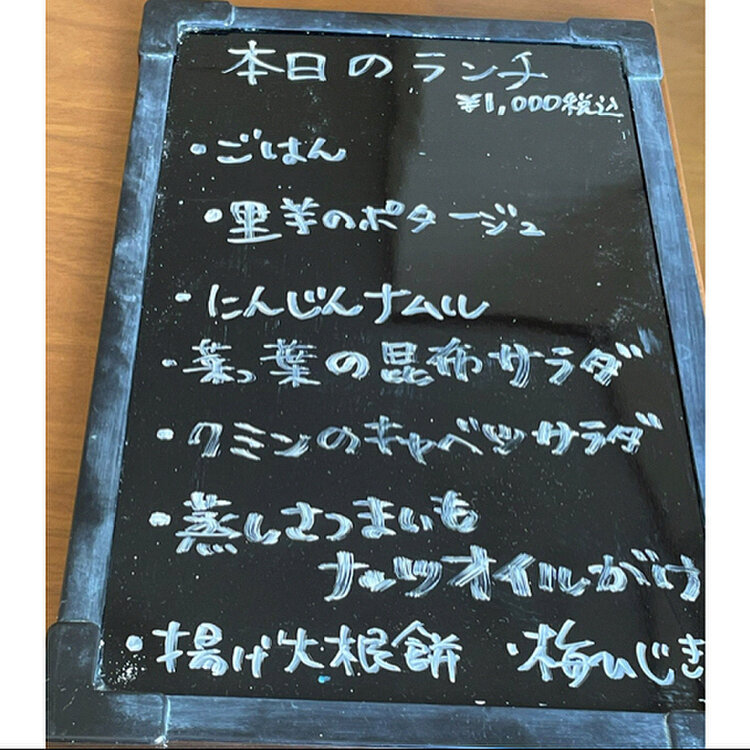 本日のランチ
¥1,000税込
・ごはん
・里芋のポタージュ
・にんじんナムル
・葉っ葉の昆布サラダ
・クミンのキャベツサラダ
・蒸しさつまいも
ナッツオイルがけ
・揚げ大根餅 ・梅ひじき